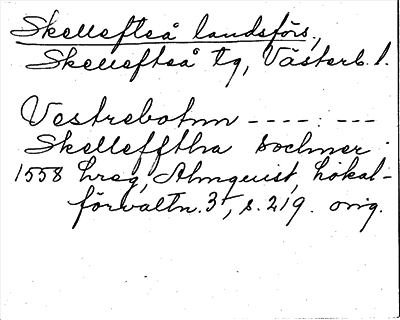 Skellefteå landsförs.,
Skellefteå tg, Västerb. l.
Vestrebotnn ---- : ---
Skellefftha sochner
1558 hreg, Almquist, Lokal-
förvaltn. 3, s. 219. orig.